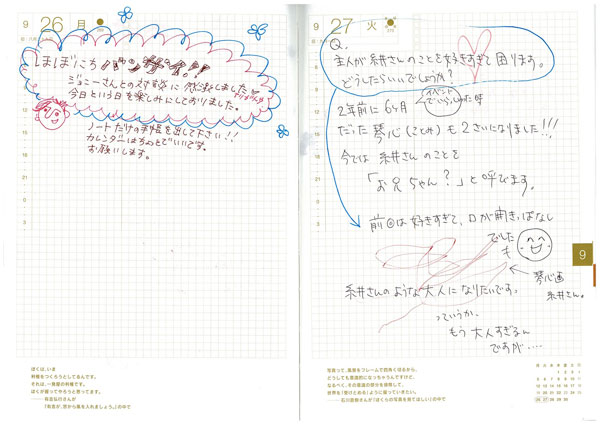 9 26 月
ほぼにち バンザイ!!
ジョニーさんとの対談に感激しました。
今日という日を楽しみにしておりました。
ノートだけの手帳を出して下さい!!
カレンダーはちょっとでいいです。
お願いします。
ぼくは、いま
時報をつくろうとしてるんです。
それは、一発屋の時報です。
ぼくが撮ってやろうと思ってます。
9 27 火
Q.
主人が糸井さんのことを好きすぎて困ります。
どうしたらいいでしょうか?
2年前に6ヶ月
イベントでいらっしゃった時
だった琴心(ことみ)も2さいになりました!!!
今では 糸井さんのことを
「お兄ちゃん?」と呼びます。
前回は好きすぎて、口が開きっぱなし
でした
琴心画
糸井さん。
糸井さんのような大人になりたいです。
っていうか、
もう大人すぎるん
ですが……
9
写真って、風景をフレームで四角く切るから、
どうしても意図的になっちゃうんですけど、
なるべく、その意図の部分を排除して、
世界を「受けとめる」ように撮っていきたい。